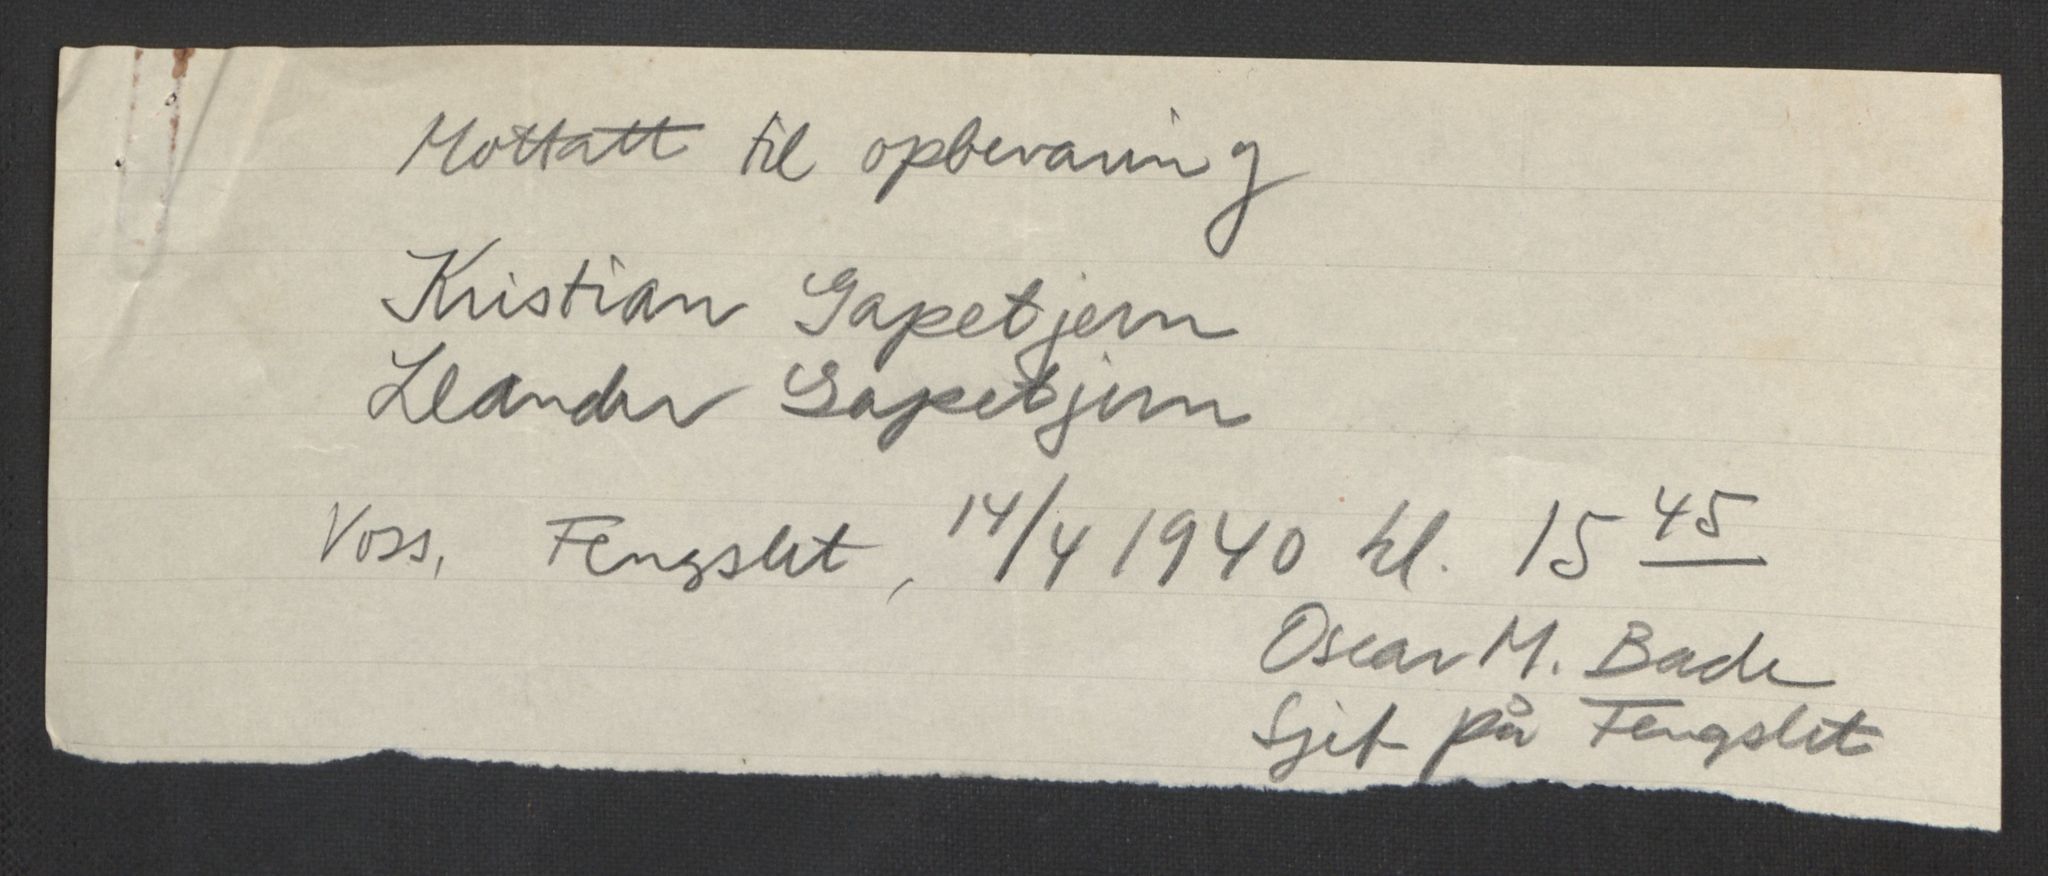 Mottatt til opbevaring
Kristian Gapetjern
Leander Gapetjern
Voss, Fengslet, 14/4 1940 kl. 15 45
Oscar M. Bade
Sjef på Fengslet